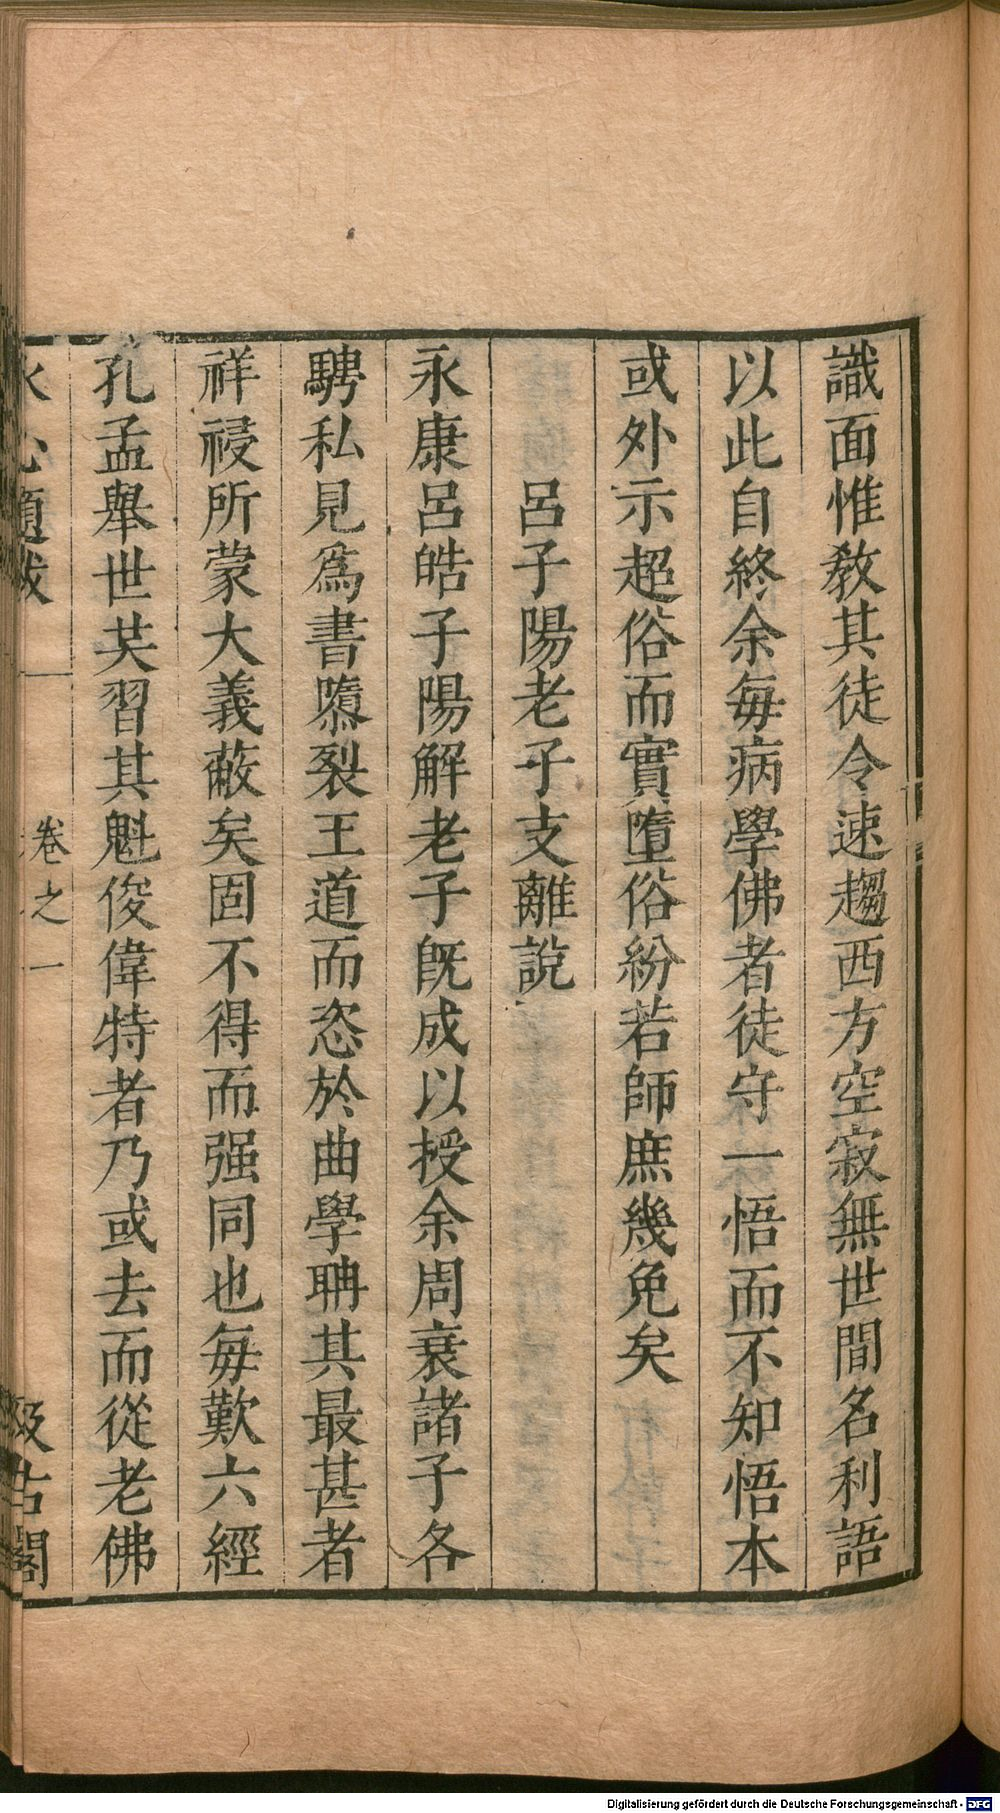 識面惟教其徒令速趨西方空寂無世間名利語
以此自終余每病學佛者徒守一悟而不知悟本
或外示超俗而實墮俗紛若師庶幾免矣
呂子陽老子支離說
永康呂皓子陽解老子旣成以授余周衰諸子各
騁私見爲書隳裂王道而恣於曲學聃其最甚者
祥祲所蒙大義蔽矣固不得而强同也每歎六經
孔孟舉世共習其魁俊偉特者乃或去而從老佛
水心題跋
卷之一
汲古閣
Digitalisierung gefördert durch die Deutsche Forschungsgemeinschaft - DFG